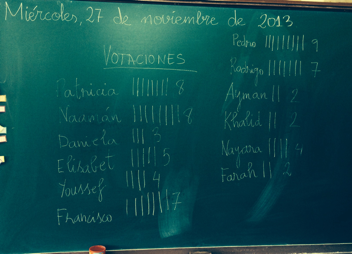 Miércoles, 27 de noviembre de 2013
VOTACIONES
Patricia |||||||| 8
Naamán ||||||||| 8
Daniela ||| 3
Elisabet ||||| 5
Youssef |||| 4
Francisco ||||||| 7
Pedro ||||||||| 9
Rodrigo ||||||| 7
Ayman || 2
Khalid || 2
Nayara |||| 4
Farah || 2